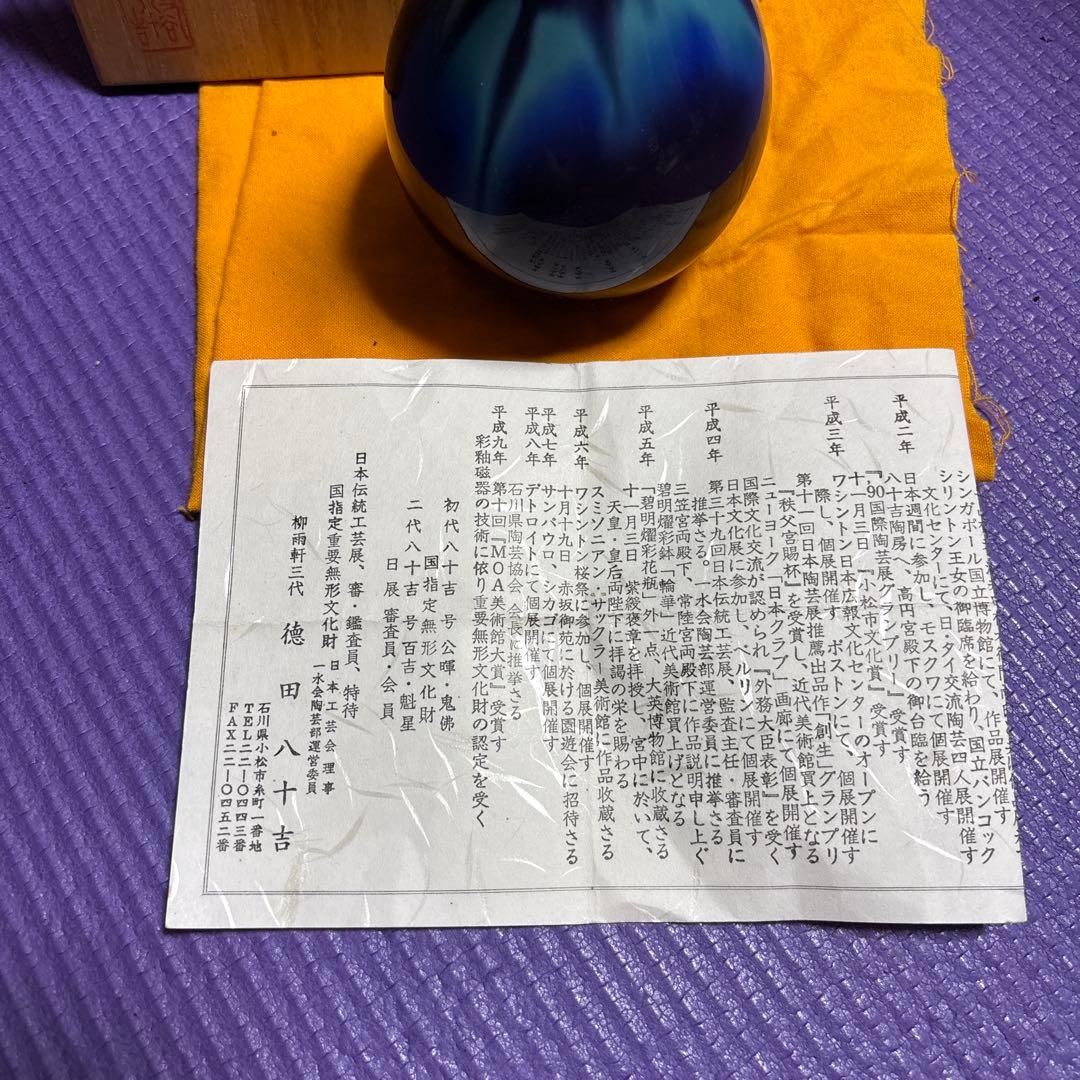 シンガポール国立博物館にて、作品展開催す
シリントン王女の御臨席を給わり、国立バンコック
文化センターにて、日・タイ交流陶芸四人展開催す
平成二年
日本週間に参加し、モスクワにて個展開催す
八十吉陶房へ、高円宮殿下の御台臨を給う
『'90国際陶芸展グランプリ』受賞す
十一月三日、『小松市文化賞』受賞す
平成三年
ワシントン日本広報文化センターのオープンに
際し、個展開催す。ボストンにて、個展開催す
第十一回日本陶芸展推薦出品作「創生」グランプリ
『秩父宮賜杯』を受賞し、近代美術館買上となる
ニューヨーク「日本クラブ」画廊にて個展開催す
国際文化交流が認められ『外務大臣表彰』を受く
日本文化展に参加し、ベルリンにて個展開催す
平成四年
第三十九回日本伝統工芸展、監査主任・審査員に
推挙さる。一水会陶芸部運営委員に推挙さる
三笠宮両殿下、常陸宮両殿下に作品説明申し上ぐ
碧明燿彩鉢「輪華」近代美術館買上げとなる
平成五年
「碧明燿彩花瓶」外一点、大英博物館に収蔵さる
十一月三日、紫綬褒章を拝授し、宮中に於いて、
天皇・皇后両陛下に拝謁の栄を賜わる
スミソニアン・サックラー美術館に作品収蔵さる
平成六年
ワシントン桜祭に参加し、個展開催す
十月十九日、赤坂御苑に於ける園遊会に招待さる
平成七年
サンパウロ、シカゴにて個展開催す
平成八年
デトロイトにて個展開催す
石川県陶芸協会 会長に推挙さる
平成九年
第十回『MOA美術館大賞』受賞す
彩釉磁器の技術に依り重要無形文化財の認定を受く
初代八十吉 号公暉・鬼佛
国指定無形文化財
二代八十吉 号百吉・魁星
日展 審査員・会員
日本伝統工芸展、審・鑑査員、特待
国指定重要無形文化財
日本工芸会理事
一水会陶芸部運営委員
柳雨軒三代
徳田八十吉
石川県小松市糸町一番地
TEL二二―〇四四三番
FAX二二―〇四五二番